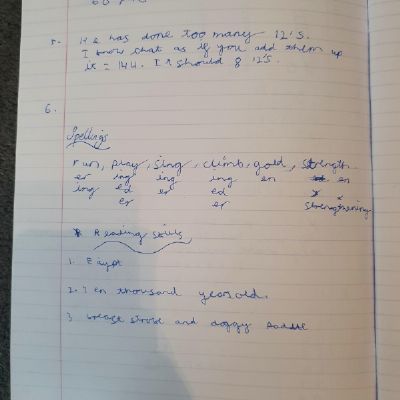 5. He has done too many 12's.
I know that as if you add them up
it = 144. It should 8 12's.
6.
Spellings
run, play, sing, climb, gold, strength
er ing ing ing en en
ing ed er ed
er er strengthening
Reading skills
1. Eaypt
2. Ten thousand years old.
3. breast stroke and doggy paddle